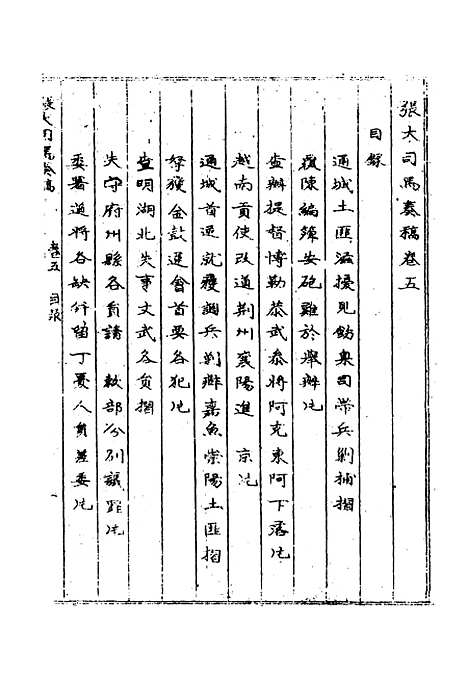 張大司馬奏稿卷五
目錄
通城土匪滋擾見飭臬司帶兵剿捕摺
覆陳編籍安砲難於舉辦片
查辦提督博勒恭武參將阿克東阿下落片
越南貢使改道荆州襄陽進　京片
通城首逆就獲調兵剿辦嘉魚崇陽土匪摺
拏獲金鼓逆會首要各犯片
查明湖北失事文武各員摺
失守府州縣各員請　敕部分別議罪片
委署道將各缺仍留丁憂人員差委片
張大司馬奏稿　卷五　目录